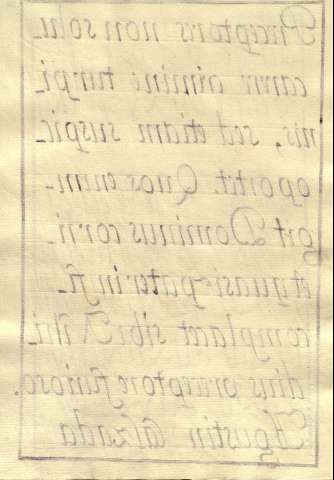 Præceptoris non solu_
carere crimine turpi_
nis, sed etiam suspic_
oportet. Quos enim_
git Dominus corri_
et quasi pater in fi_
complacet sibi Nihi_
dius præceptore furioso.
Agustin Calzada